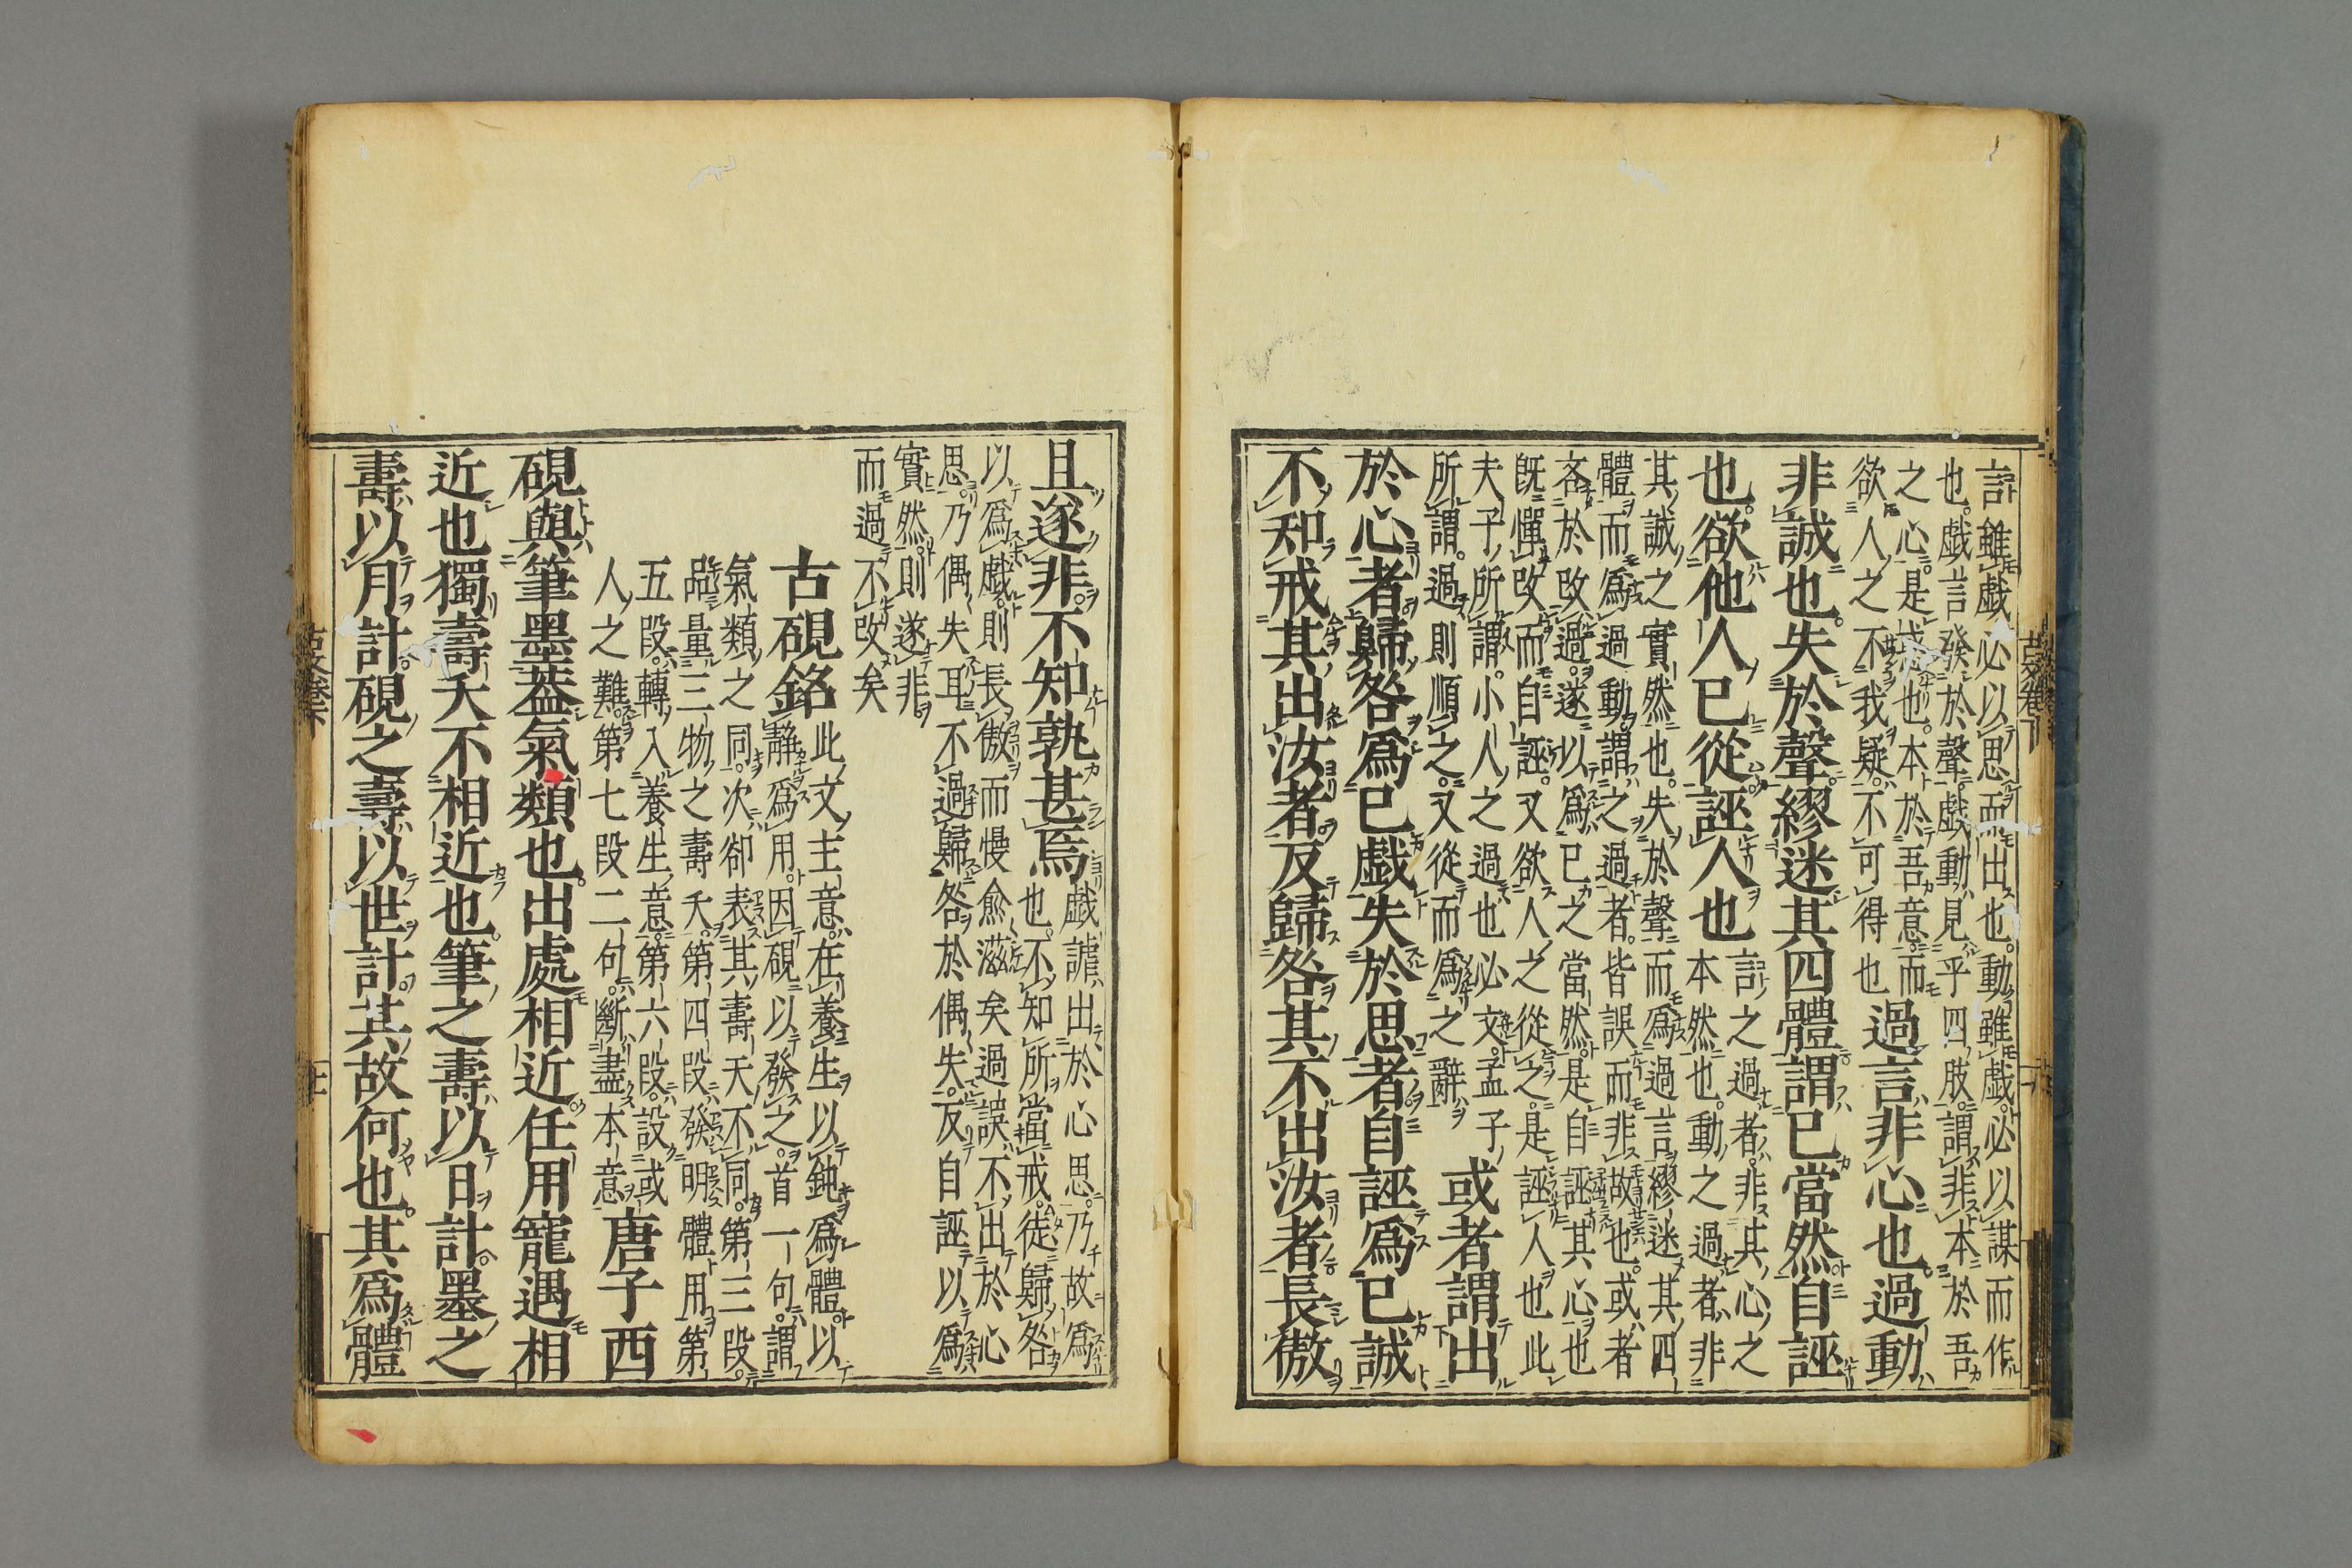 言雖戯必以思而出也。動雖戯必以謀而作
也。戯言發於聲。戯動見乎四肢。謂非本於吾
之心。是惑也。本於吾意。而
欲人之不我疑。不可得也
過言非心也過動
非誠也。失於聲繆迷其四體謂已當然自誣
也。欲他人已從誣人也
言之過者。非其心之
本然也。動之過者、非
其誠之實然也。失於聲而爲過言繆迷其四
體而爲過動。謂之過者。皆誤而非故也。或者
吝於改過。遂以爲已之當然。是自誣其心也
既憚改而自誣。又欲人之從之。是誣人也此
夫子所謂。小人之過也必文。孟子
所謂。過則順之。又從而爲之辭
或者謂出
於心者歸咎爲已戯失於思者自誣爲已誠
不知戒其出汝者反歸咎其不出汝者長傲
且遂非。不知孰甚焉
戯謔出於心思。乃故爲
也。不知所當戒。徒歸咎
以爲戯。則長傲而慢愈滋矣過誤不出於心
思。乃偶失耳。不過歸咎於偶失。反自誣以爲
實然。則遂非
而過不改矣
古硯銘
此文主意在養生以鈍爲體以
靜爲用。因硯以發之。首一句。謂
氣類之同。次卻表其壽夭不同。第三段。
品量三物之壽夭。第四段發明體用第
五段。轉入養生意。第六段。設或
人之難。第七段二句。斷盡本意
唐子西
硯與筆墨葢氣類也。出處相近任用寵遇相
近也獨壽夭不相近也。筆之壽以日計。墨之
壽以月計硯之壽以世計。其故何也。其爲體
古文卷下
古文卷下